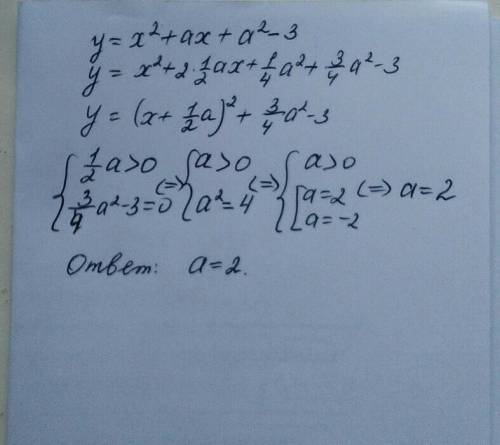 y = x² + ax + a² - 3
y = x² + 2·1/2ax + 1/4a² + 3/4a² - 3
y = (x + 1/2a)² + 3/4a² - 3
{ 1/2a > 0 (=> { a > 0 (=> { a > 0
{ 3/4a² - 3 = 0 { a² = 4 { [ a = 2 (=> a = 2
[ a = -2
Ответ: a = 2.